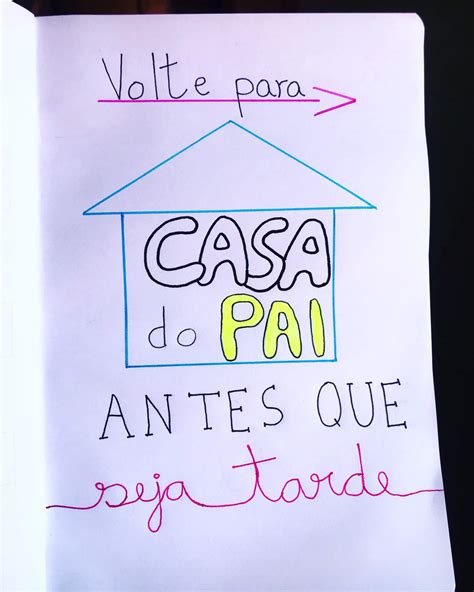 Volte para
CASA
do PAI
ANTES QUE
seja tarde